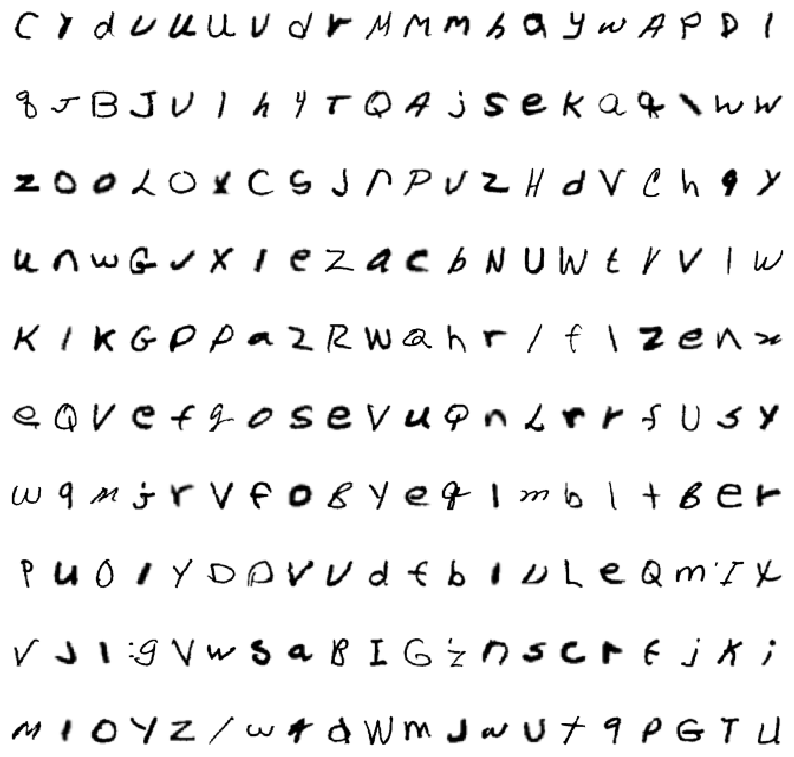 C r d u u U v d r M M m h a y w A P D l
q r B J U l h y T Q A j s e K a q \ w w
z O o L O x C S J n P V Z H d V C h q y
u n w G v X l e Z a c b N U W t r V l W
K l K G D p a 2 R W Q h r / f l z e n x
e Q V e f g o s e V u Q n L r r f U s Y
w q m j r V f o B y e q l m b l t B e r
P u O l Y D D V V d t b l U L e Q m I X
V J l g V w s a B I G z n s c r E j K i
M l O Y Z / w t d W m J w U t q P G T U